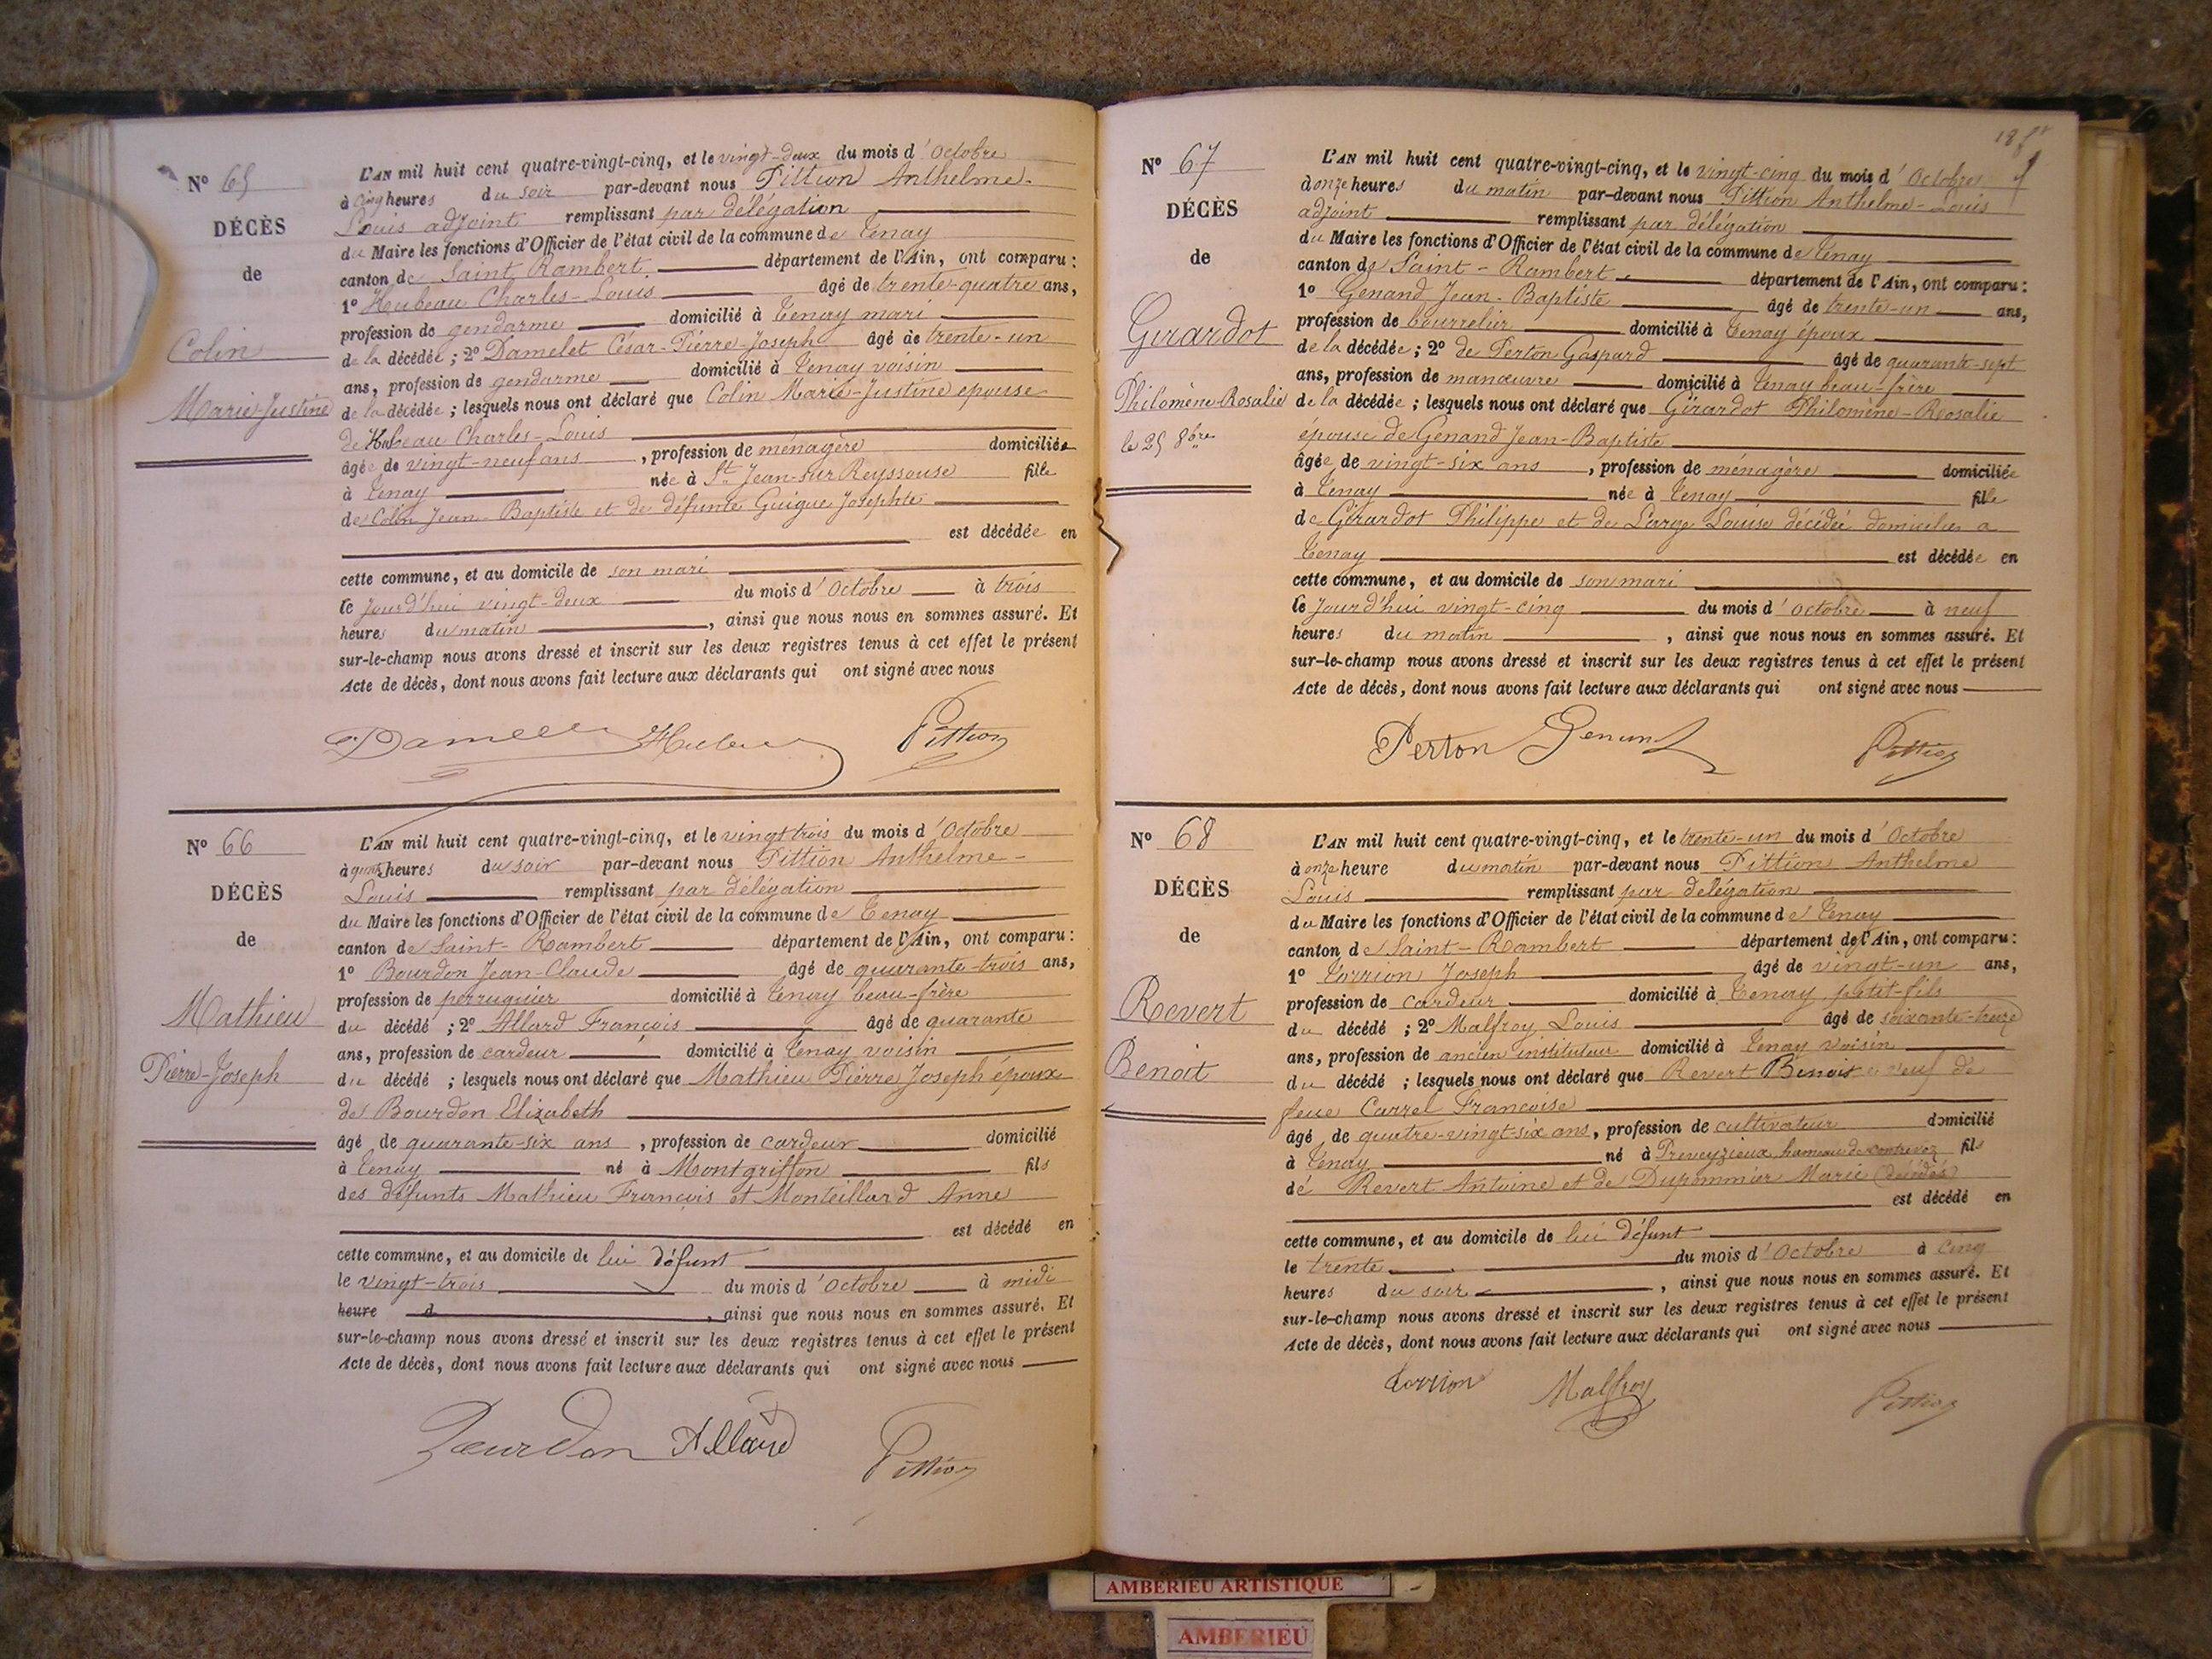 N° 65
DÉCÈS
de
Colin
Marie-Justine
L'AN mil huit cent quatre-vingt-cinq, et le vingt-deux du mois d'Octobre
à cinq heures du soir par-devant nous Pittion Anthelme-
Louis adjoint remplissant par délégation
du Maire les fonctions d'Officier de l'état civil de la commune de Tenay
canton de Saint Rambert département de l'Ain, ont comparu :
1° Hubeau Charles-Louis âgé de trente-quatre ans,
profession de gendarme domicilié à Tenay mari
de la décédée ; 2° Damelet César-Pierre-Joseph âgé de trente-un
ans, profession de gendarme domicilié à Tenay voisin
de la décédée ; lesquels nous ont déclaré que Colin Marie-Justine epouse
de Hubeau Charles-Louis
âgée de vingt-neuf ans , profession de ménagère domiciliée
à Tenay née à St Jean-sur Reyssouse fille
de Colin Jean-Baptiste et de défunte Guigue Josephte
est décédée en
cette commune, et au domicile de son mari
le jourd'hui vingt-deux du mois d'Octobre à trois
heures du matin , ainsi que nous nous en sommes assuré. Et
sur-le-champ nous avons dressé et inscrit sur les deux registres tenus à cet effet le présent
Acte de décès, dont nous avons fait lecture aux déclarants qui ont signé avec nous
Pittion
N° 66
DÉCÈS
de
Mathieu
Pierre-Joseph
L'AN mil huit cent quatre-vingt-cinq, et le vingt trois du mois d'Octobre
heures du soir par-devant nous Pittion Anthelme-
Louis remplissant par délégation
du Maire les fonctions d'Officier de l'état civil de la commune de Tenay
canton de Saint-Rambert département de l'Ain, ont comparu :
1° Bourdon Jean-Claude âgé de quarante-trois ans,
profession de perruquier domicilié à Tenay beau-frère
du décédé ; 2° Allard François âgé de quarante
ans, profession de cardeur domicilié à Tenay voisin
du décédé ; lesquels nous ont déclaré que Mathieu Pierre Joseph époux
de Bourdon Elizabeth
âgé de quarante-six ans , profession de cardeur domicilié
à Tenay né à Montgriffon fils
des défunts Mathieu François et Monteillard Anne
est décédé en
cette commune, et au domicile de lui défunt
le vingt-trois du mois d'Octobre à midi
heure d , ainsi que nous nous en sommes assuré. Et
sur-le-champ nous avons dressé et inscrit sur les deux registres tenus à cet effet le présent
Acte de décès, dont nous avons fait lecture aux déclarants qui ont signé avec nous
Bourdon Allard Pittion
N° 67
DÉCÈS
de
Girardot
Philomène-Rosalie
le 25 8bre
L'AN mil huit cent quatre-vingt-cinq, et le vingt-cinq du mois d'Octobre
heures du matin par-devant nous Pittion Anthelme-Louis
adjoint remplissant par délégation
du Maire les fonctions d'Officier de l'état civil de la commune de Tenay
canton de Saint-Rambert département de l'Ain, ont comparu :
1° Genand Jean-Baptiste âgé de trente-un ans,
profession de bourrelier domicilié à Tenay époux
de la décédée ; 2° de Perton Gaspard âgé de quarante-sept
ans, profession de manœuvre domicilié à Tenay beau-frère
de la décédée ; lesquels nous ont déclaré que Girardot Philomène-Rosalie
épouse de Genand Jean-Baptiste
âgée de vingt-six ans , profession de ménagère domiciliée
à Tenay née à Tenay fille
de Girardot Philippe et de Large Louise décédée domiciliés a
Tenay est décédée en
cette commune, et au domicile de son mari
le jourd'hui vingt-cinq du mois d'Octobre à neuf
heures du matin , ainsi que nous nous en sommes assuré. Et
sur-le-champ nous avons dressé et inscrit sur les deux registres tenus à cet effet le présent
Acte de décès, dont nous avons fait lecture aux déclarants qui ont signé avec nous
Perton Genand Pittion
N° 68
DÉCÈS
de
Revert
Benoit
L'AN mil huit cent quatre-vingt-cinq, et le trente-un du mois d'Octobre
à onze heure du matin par-devant nous Pittion Anthelme
Louis remplissant par délégation
du Maire les fonctions d'Officier de l'état civil de la commune de Tenay
canton de Saint-Rambert département de l'Ain, ont comparu :
1° Torrion Joseph âgé de vingt-un ans,
profession de cardeur domicilié à Tenay petit-fils
du décédé ; 2° Malfroy Louis âgé de soixante-treize
ans, profession de ancien instituteur domicilié à Tenay voisin
du décédé ; lesquels nous ont déclaré que Revert Benoit veuf de
feue Carrel Francoise
âgé de quatre-vingt-six ans, profession de cultivateur domicilié
à Tenay né à Preveyzieux hameau de contrevoz fils
de Revert Antoine et de Dupommier Marie (décédés)
est décédé en
cette commune, et au domicile de lui défunt
le trente du mois d'Octobre à cinq
heures du soir , ainsi que nous nous en sommes assuré. Et
sur-le-champ nous avons dressé et inscrit sur les deux registres tenus à cet effet le présent
Acte de décès, dont nous avons fait lecture aux déclarants qui ont signé avec nous
Torrion Malfroy Pittion
AMBERIEU ARTISTIQUE
AMBERIEU